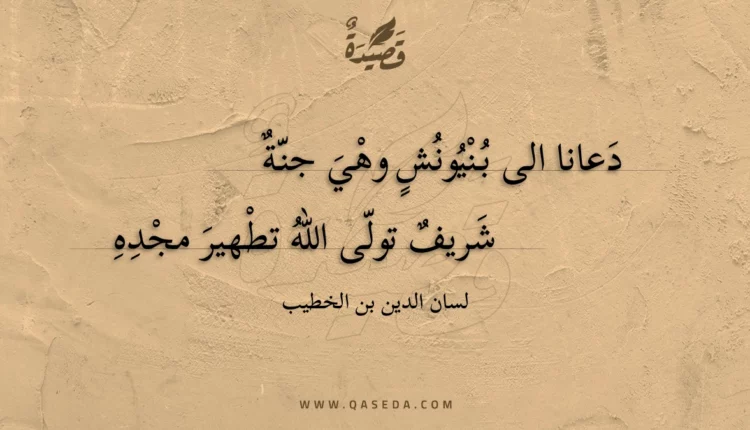 قَصِيْدَةٌ
دَعانا الى بُنْيُونُشٍ وهْيَ جنّةٌ
شَريفٌ تولّى اللهُ تطْهيرَ مجْدِهِ
لسان الدين بن الخطيب
WWW.QASEDA.COM